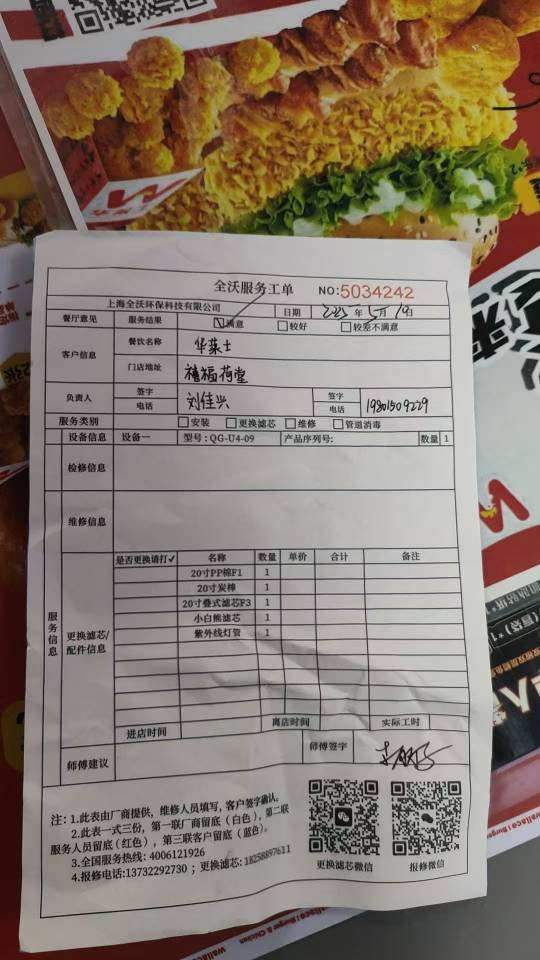 全沃服务工单 NO:5034242
上海全沃环保科技有限公司 日期 2025年5月19日
餐厅意见 服务结果 ☑满意 □较好 □较差不满意
客户信息 餐饮名称 华莱士
门店地址 禧福荷堂
负责人 签字 刘佳兴 签字
电话 电话 19801509229
服务类别 □安装 □更换滤芯 □维修 □管道消毒
服务信息
设备信息 设备一 型号:QG-U4-09 产品序列号: 数量 1
检修信息
维修信息
更换滤芯/配件信息
是否更换请打✓ 名称 数量 单价 合计 备注
20寸PP棉F1 1
20寸炭棒 1
20寸叠式滤芯F3 1
小白熊滤芯 1
紫外线灯管 1
进店时间 离店时间 实际工时
师傅建议 师傅签字
注:1.此表由厂商提供,维修人员填写,客户签字确认。
2.此表一式三份,第一联厂商留底(白色),第二联
服务人员留底(红色),第三联客户留底(蓝色)。
3.全国服务热线:4006121926
4.报修电话:13732292730;更换滤芯:18258897611
更换滤芯微信 报修微信
Wallace | Burger & Chicken